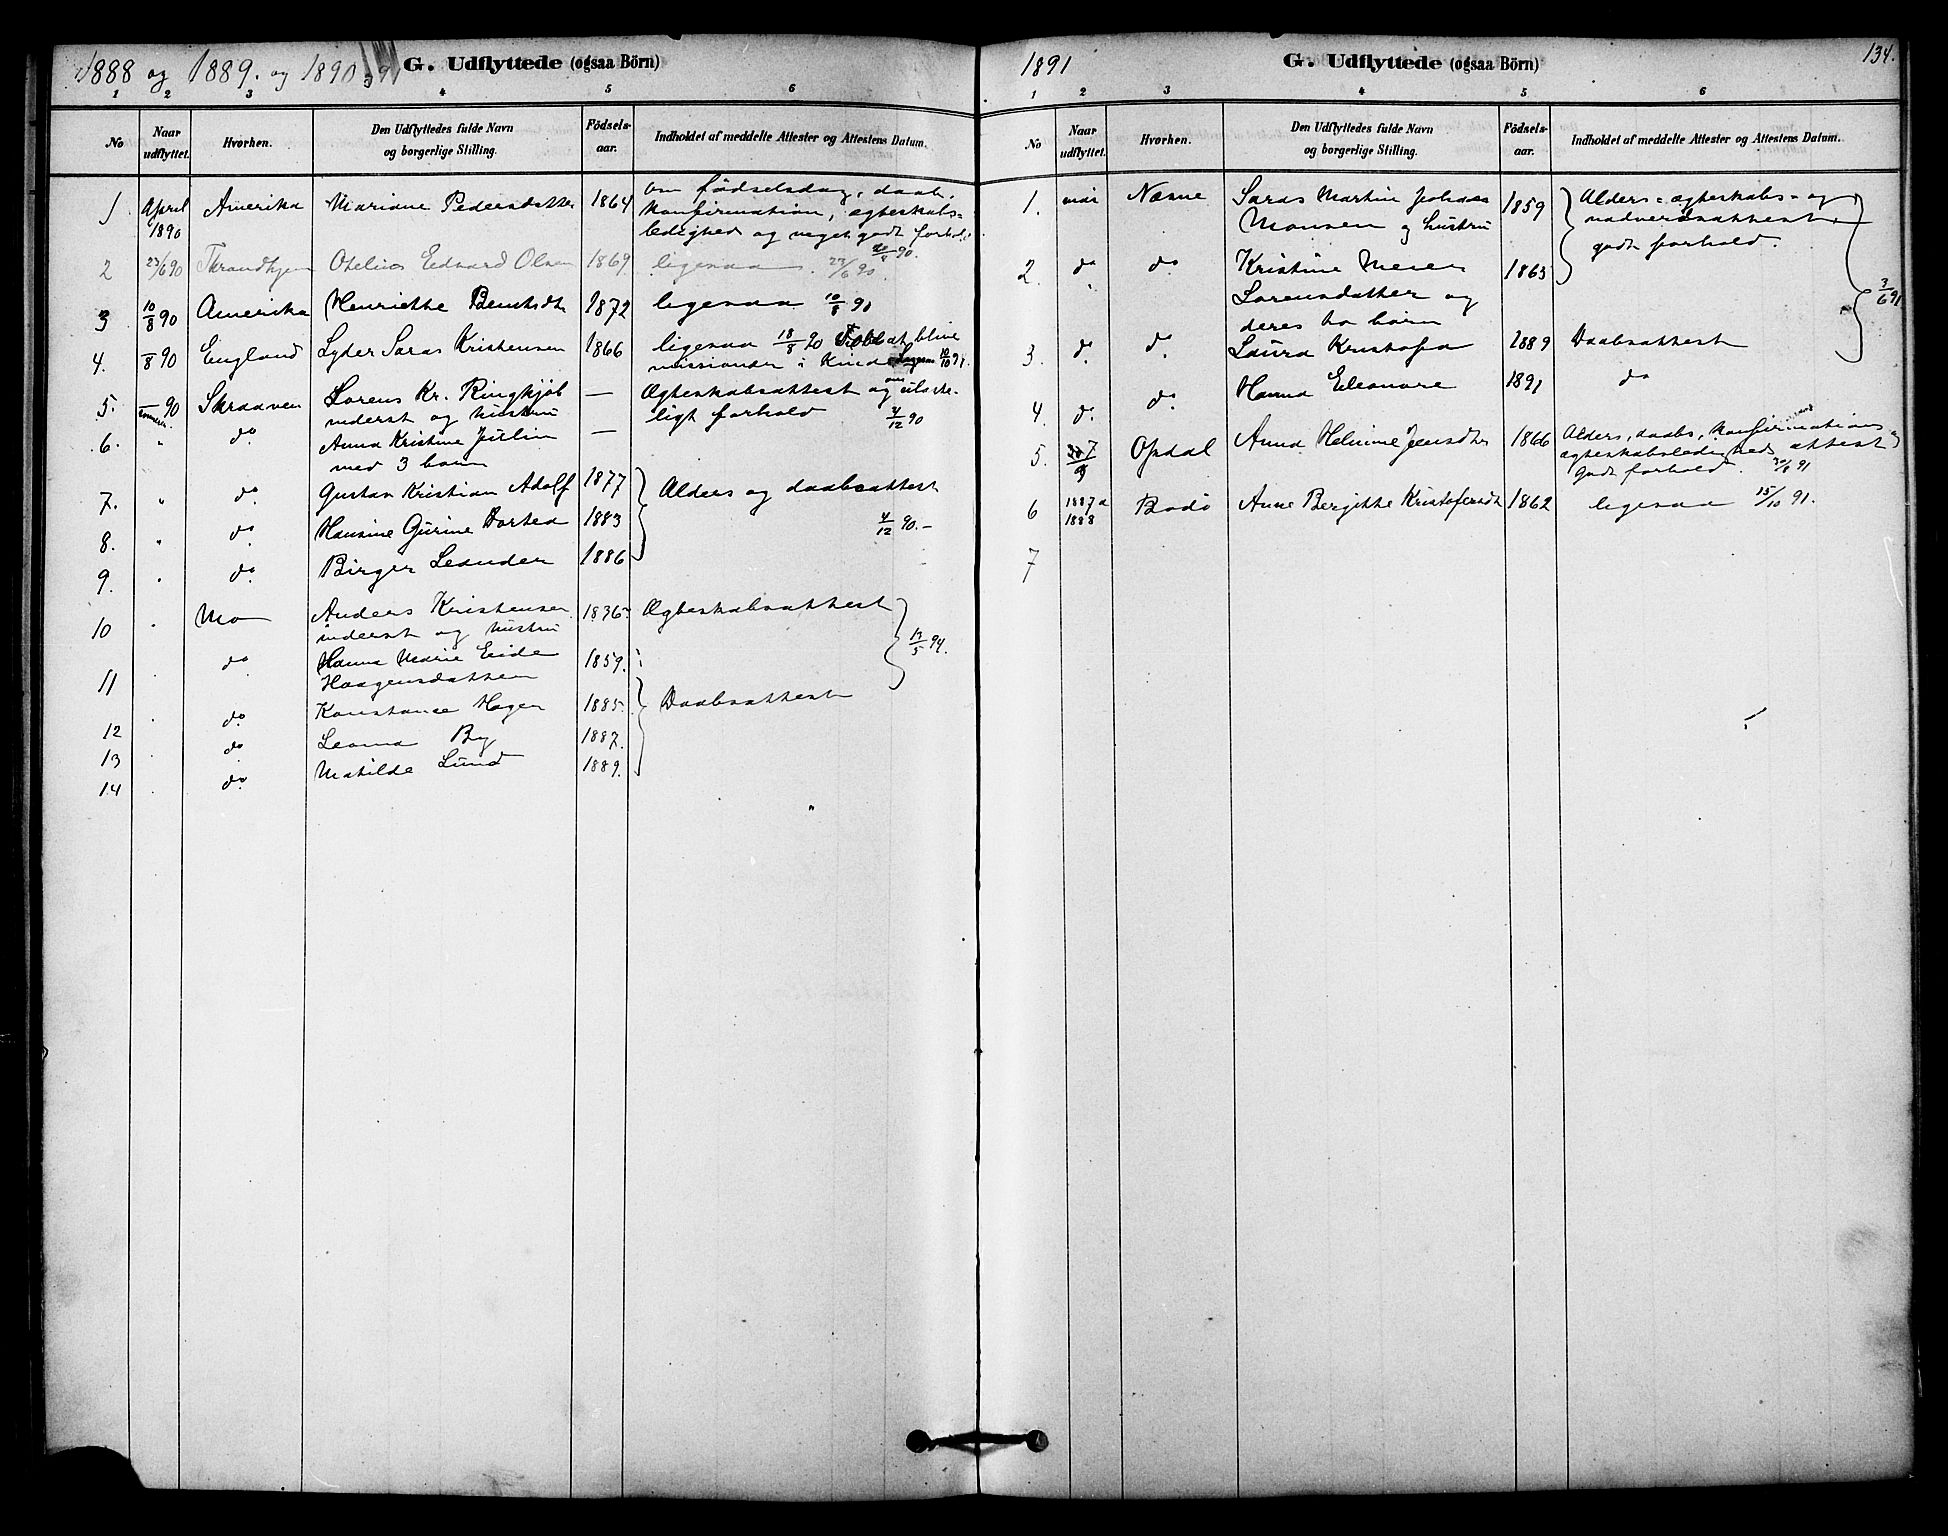 1888 og 1889. og 1890
G. Udflyttede (ogsaa Börn)
1 2 3 4 5 6
No
Naar udflyttet.
Hvorhen.
Den Udflyttedes fulde Navn og borgerlige Stilling.
Födsels-aar.
Indholdet af meddelte Attester og Attestens Datum.
1 April 1890 Amerika Mariane Pedersdatter 1864 om fødselsdag, daab,
konfirmation, ægteskabs=
ledighed og meget godt forhold
90.
2 23/6 90 Throndhjem Otelius Edvard Olsen 1869 ligesaa 23/6 90.
3 10/8 90 Amerika Henriette Berntsdtr 1872 ligesaa 10/8 90
4. /8 90 England Lyder Saras Kristensen 1866 ligesaa 18/8 90 at blive
missionær i 10/10 91.
5. 90 Skraaven Lorens Kr. Ringkjöb — Ægteskabsattest og om
inderst og hustru ligt forhold 4/12 90
6. " do Anna Kristine Julin —
med 3 barn
7. " do Gustav Kristian Adolf 1877 Alders og daabsattest
8. " do Hansine Gurine Dortea 1883 4/12 90.-
9. " do Birger Leander 1886
10 " Mo Anders Kristensen 1836 Ægteskabsattest
inderst og hustru 13/5 94.
11 do Hanna Marie Eide 1859.
Haagensdatter
12 do Konstanse Hagen 1885. Daabsattest
13 do Leona By 1887.
14 do Matilde Lund 1889.
1891
G. Udflyttede (ogsaa Börn)
134.
1 2 3 4 5 6
No
Naar udflyttet.
Hvorhen.
Den Udflyttedes fulde Navn og borgerlige Stilling.
Födsels-aar.
Indholdet af meddelte Attester og Attestens Datum.
1. mai Næsne Saras Martin Johan 1859 Alders= ægteskabs= og
Monsen og hustru nadverdsattest,
godt forhold.
2. do do Kristine 1863 3/6 91
Lorensdatter og
deres to børn
3. do do Laura Kristofa 1889 Daabsattest
4. do do Hanna Eleonore 1891 do
5. Opdal Anna Helmine Jensdtr 1866 Alders, daabs, konfirmations
ægteskabsledigheds attest
godt forhold. 30/6 91
6 1887 a 1888 Bodö Anne Bergitte Kristofersdtr 1862 ligesaa 15/10 91.
7